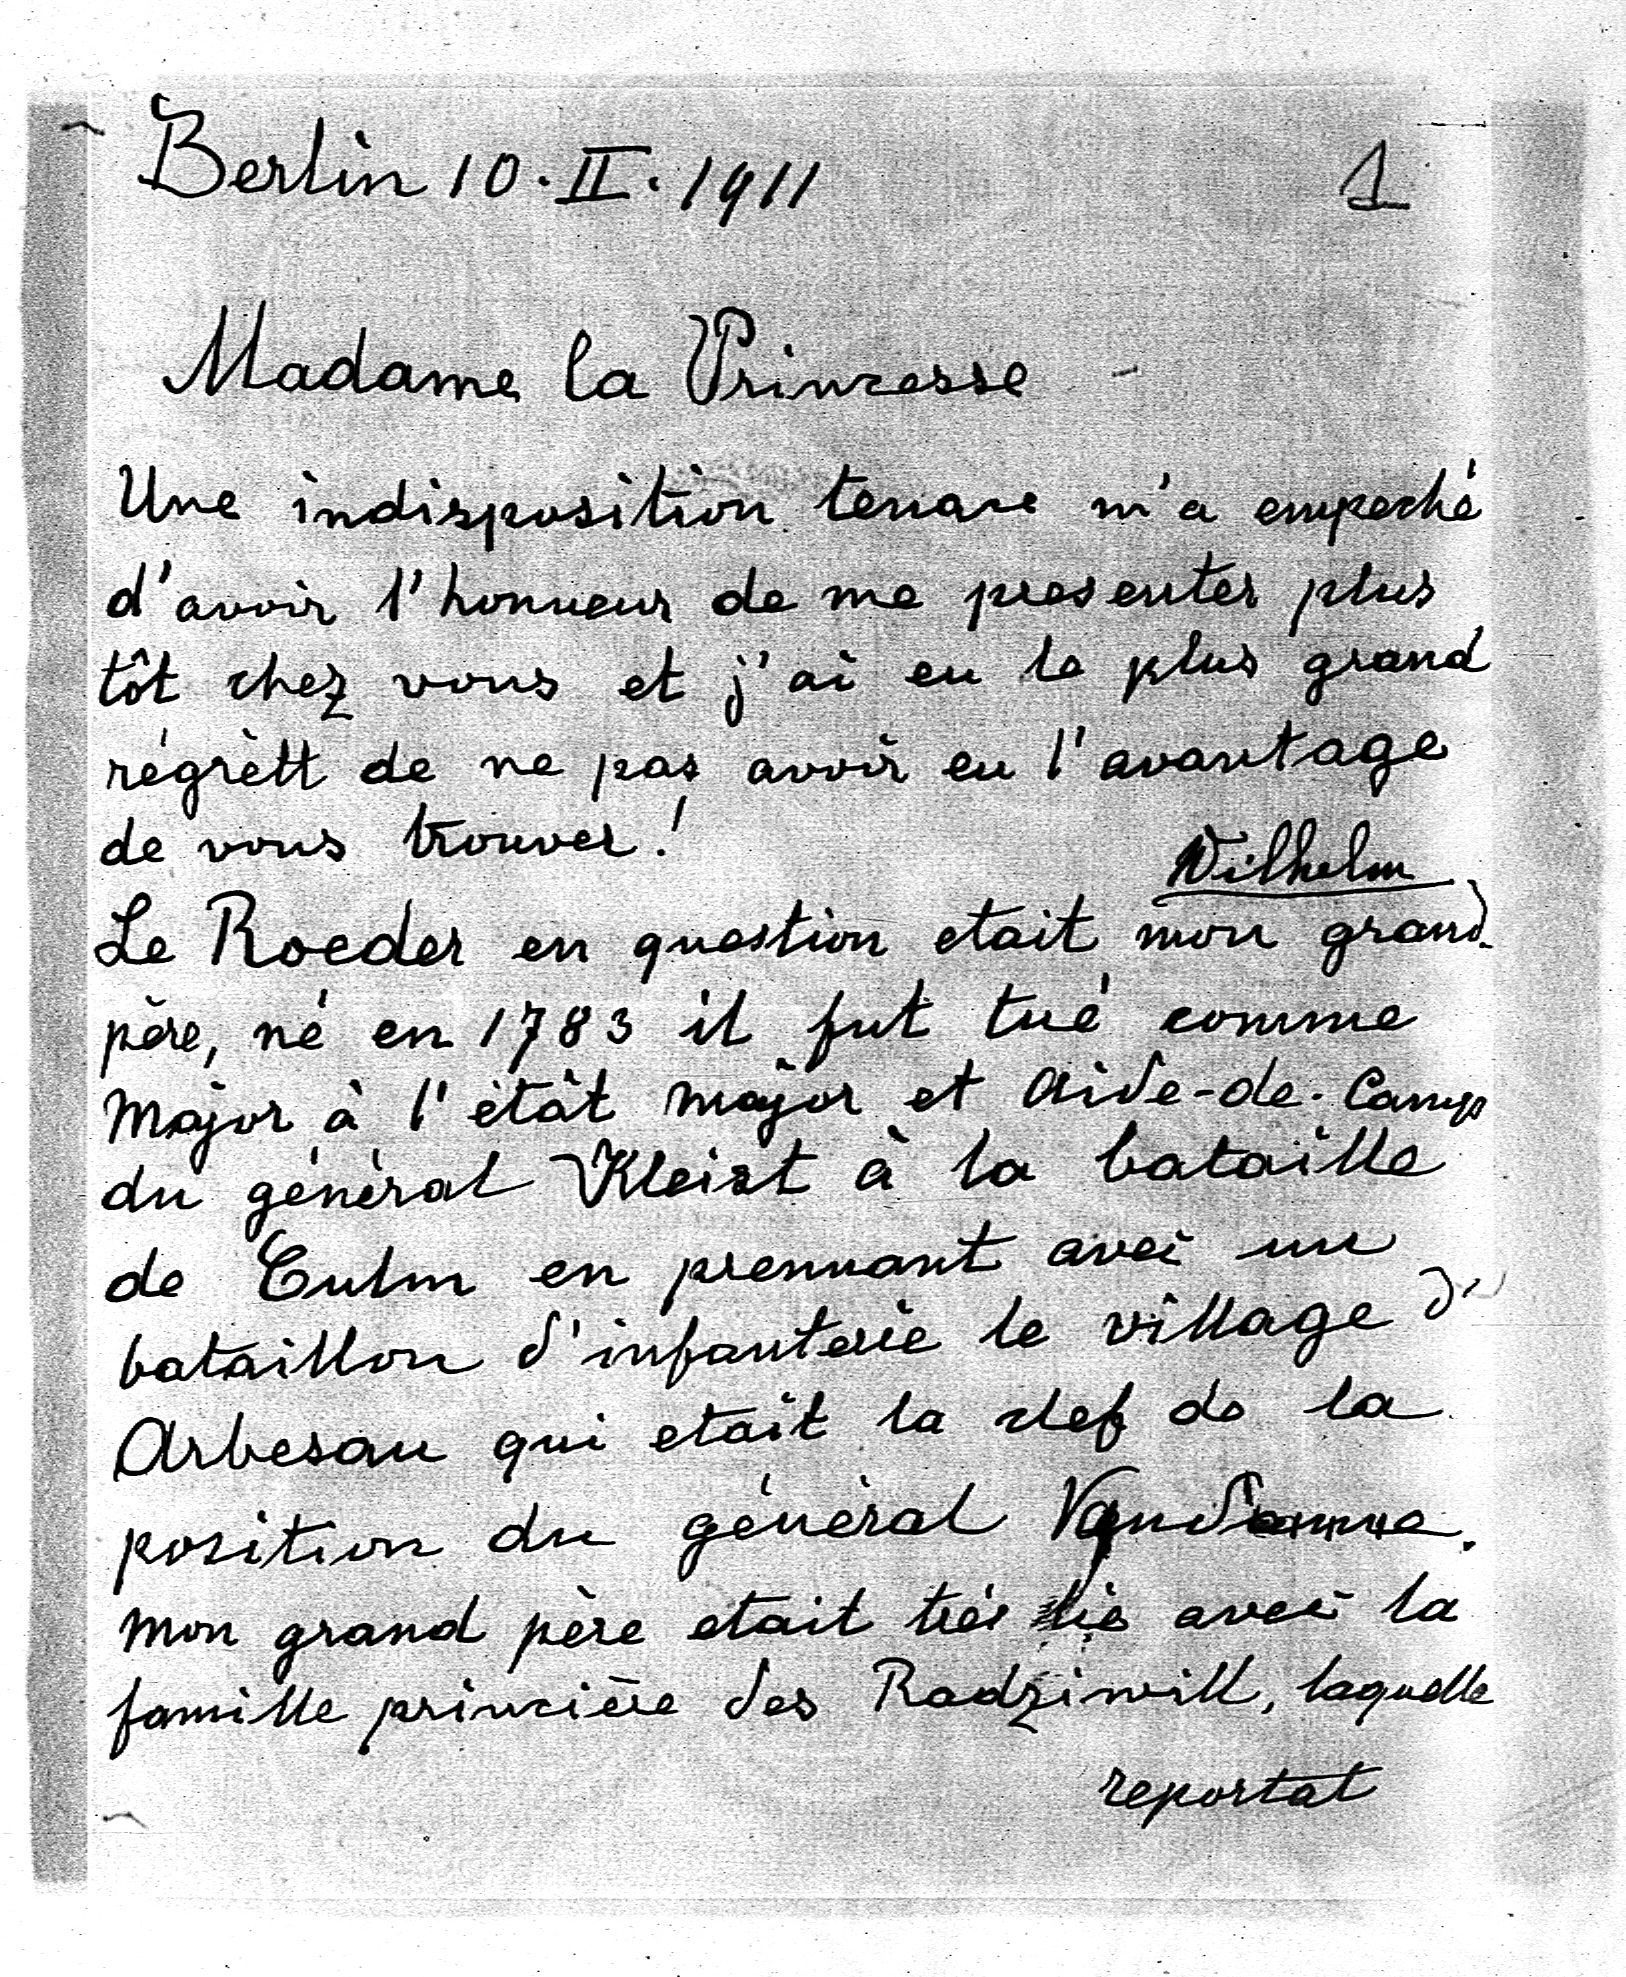 Berlin 10. II. 1911
1
Madame la Princesse
Une indisposition tenace m'a empeché
d'avoir l'honneur de me presenter plus
tôt chez vous et j'ai eu le plus grand
régrètt de ne pas avoir eu l'avantage
de vous trouver!
Wilhelm
Le Roeder en question etait mon grand
père, né en 1783 il fut tué comme
Major à l'étât major et Aide-de-Camp
du général Kleist à la bataille
de Culm en prennant avec un
bataillon d'infanterie le village d'
Arbesau qui etait la clef de la
position du général Vandamme.
Mon grand père etait trés lié avec la
famille princière des Radziwill, laquelle
reportat